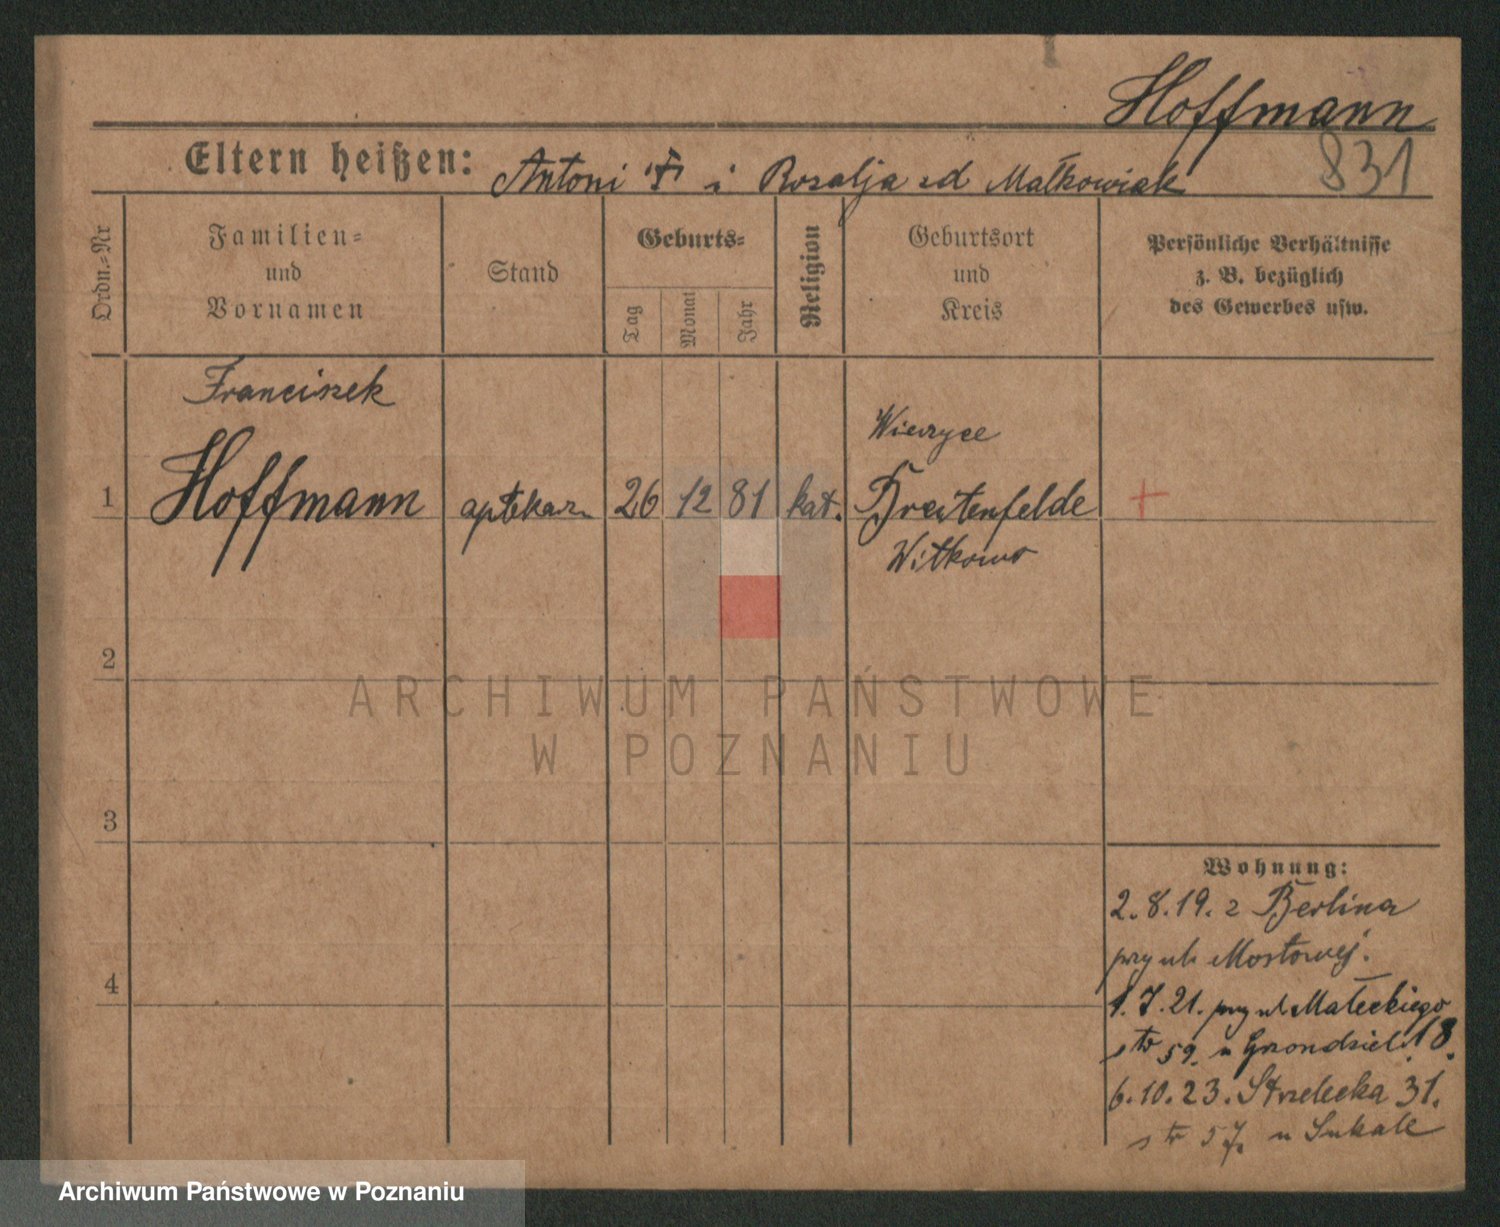 Hoffmann
831
Eltern heißen: Antoni i Rozalja zd Małkowiak
Ordn.-Nr
Familien-
und
Vornamen
Stand
Geburts-
Tag
Monat
Jahr
Religion
Geburtsort
und
Kreis
Persönliche Verhältnisse
z. B. bezüglich
des Gewerbes usw.
Franciszek
Wierzyce
1 Hoffmann aptekarz 26 12 81 kat. Breitenfelde +
Witkowo
2
ARCHIWUM PAŃSTWOWE
W POZNANIU
3
Wohnung:
2.8.19. z Berlina
przy ul. Mostowej.
4
1.7.21. przy ul Małeckiego
str 59. u Grondziel. 18.
6.10.23. Strzelecka 31.
str 57. u Sukale
Archiwum Państwowe w Poznaniu